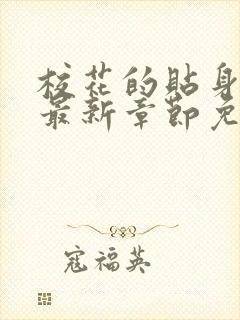 校花的贴身
最新章节免
寇福英